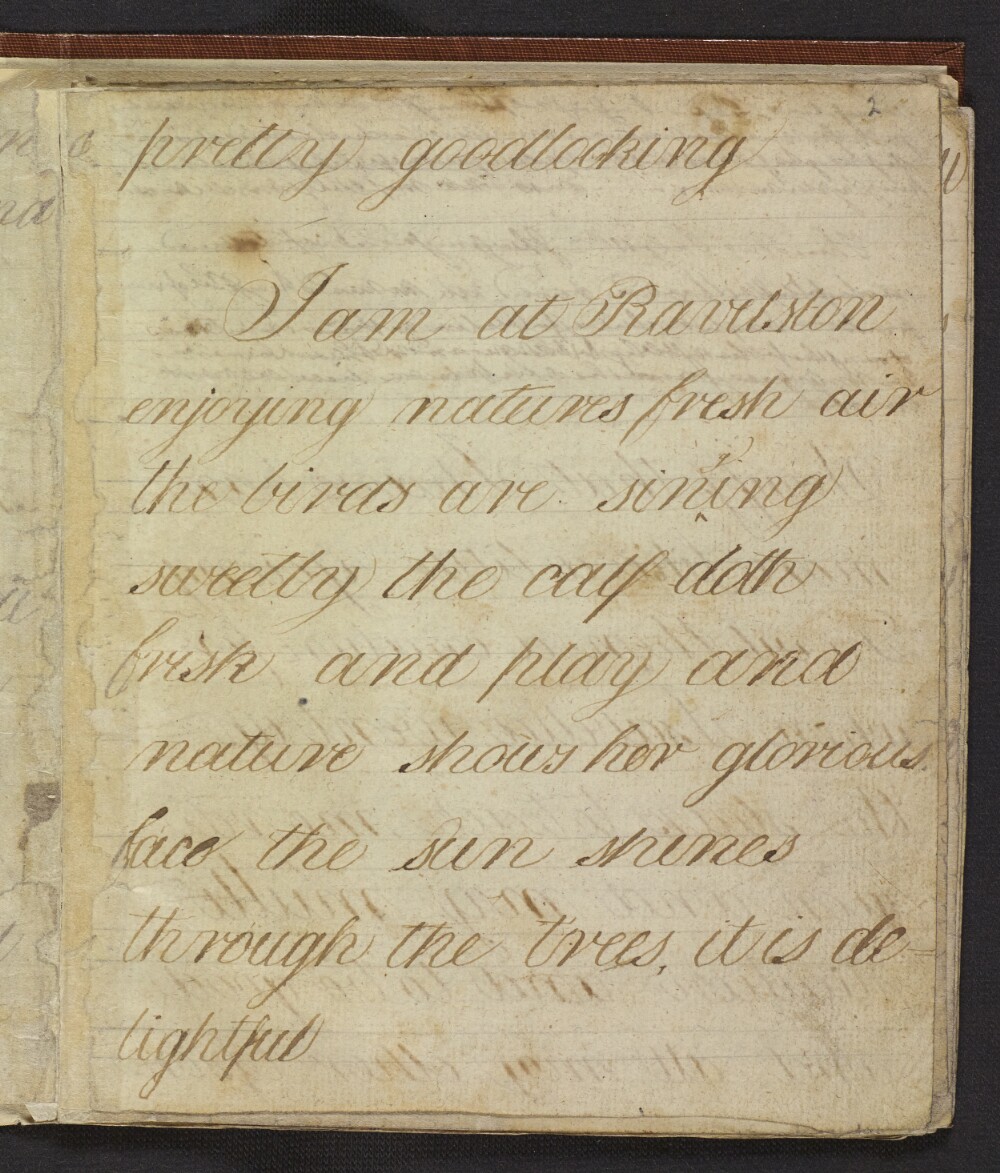 2
pretty goodlooking
I am at Ravelston
enjoying natures fresh air
the birds are singing
sweetly the calf doth
frisk and play and
nature shows her glorious
face the sun shines
through the trees, it is de-
lightful